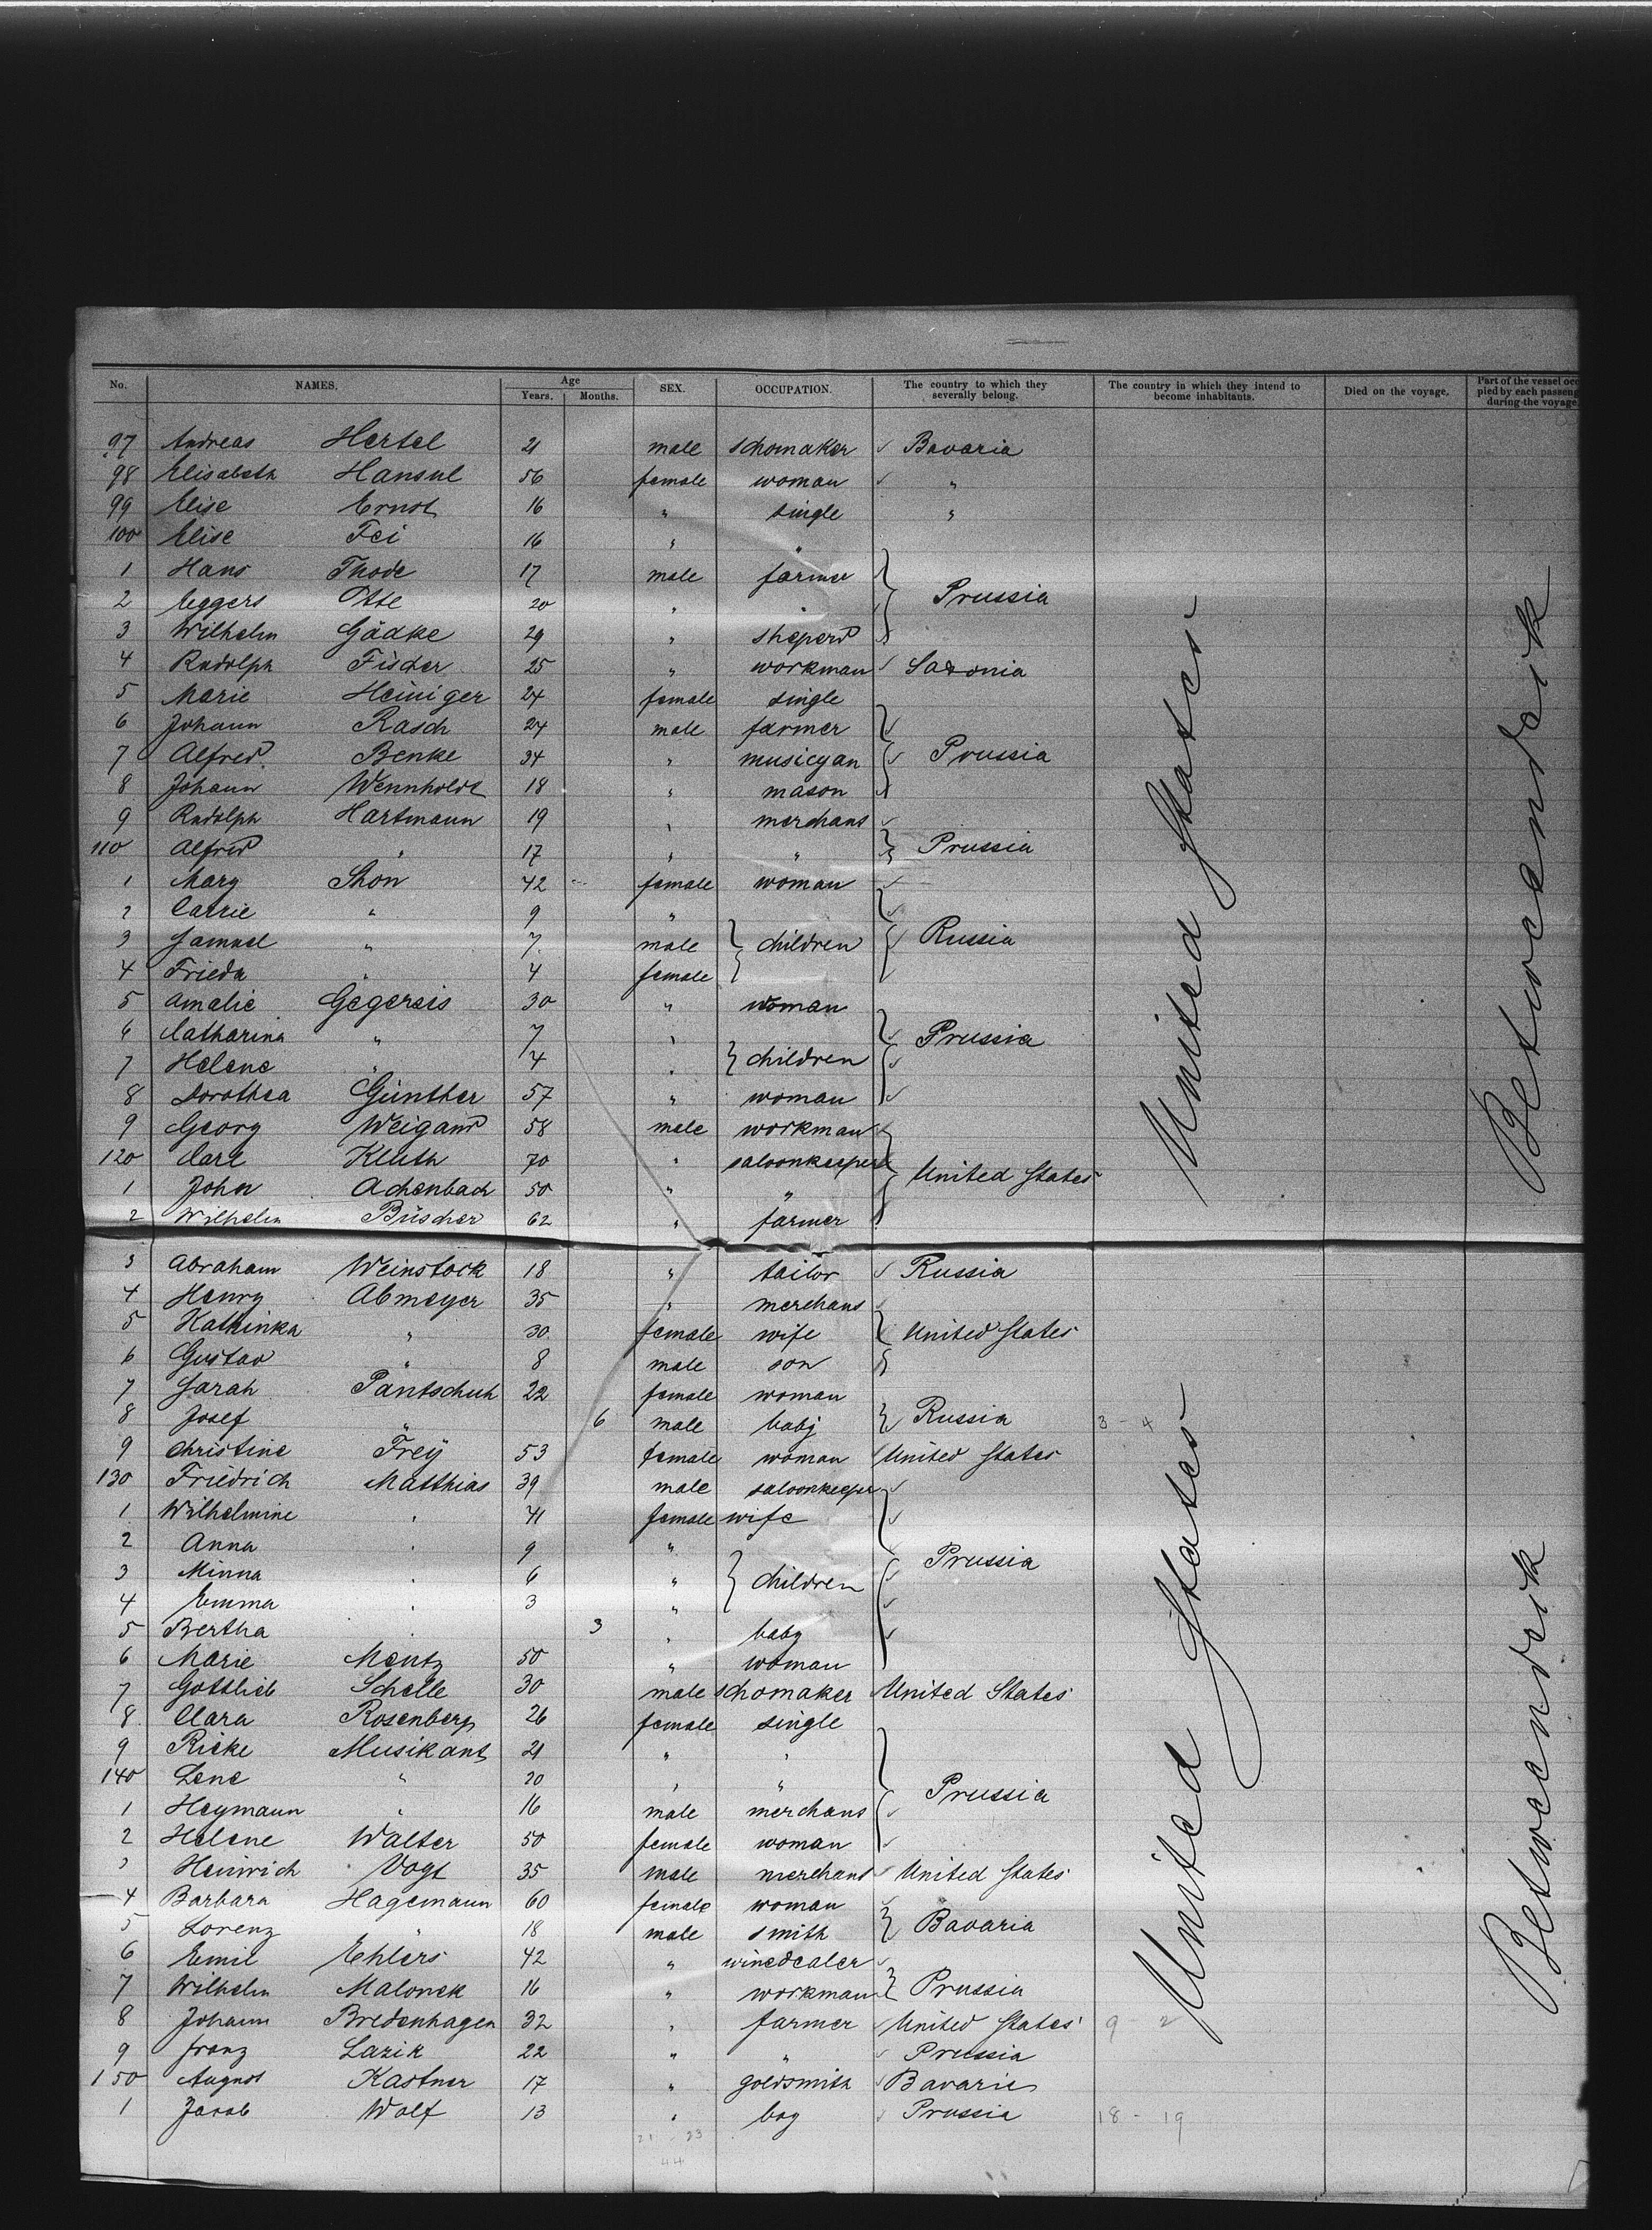 No. NAMES. Age Years. Months. SEX. OCCUPATION. The country to which they severally belong. The country in which they intend to become inhabitants. Died on the voyage. Part of the vessel occupied by each passenger during the voyage.
97 Andreas Hertel 21 male schomaker Bavaria
98 Elisabeth Hansul 56 female woman "
99 Elise Ernst 16 " single "
100 Elise Fei 16 " "
1 Hans Thode 17 male farmer
2 Eggers Otte 20 " " Prussia
3 Wilhelm Gädke 29 " sheperd
4 Rudolph Fischer 25 " workman Saxonia
5 Marie Heiniger 24 female single
6 Johann Rasch 24 male farmer
7 Alfred Benke 34 " musicyan Prussia
8 Johann Wennholdt 18 " mason
9 Rudolph Hartmann 19 " merchant
110 Alfred " 17 " " Prussia
1 Mary Shon 42 female woman
2 Carrie " 9 "
3 Samuel " 7 male children Russia
4 Frieda " 4 female
5 Amalie Gegereis 30 " woman
6 Catharina " 7 " Prussia
7 Helene " 4 " children
8 Dorothea Günther 57 " woman
9 Georg Weigand 58 male workman
120 Carl Kluth 70 " saloonkeeper United States
1 John Achenbach 50 " "
2 Wilhelm Büscher 62 " farmer
3 Abraham Weinstock 18 " tailor Russia
4 Henry Abmeyer 35 " merchant
5 Kathinka " 30 female wife United States
6 Gustav " 8 male son
7 Sarah Pantschuh 22 female woman
8 Josef " 6 male baby Russia 3 - 4
9 Christine Frey 53 female woman United States
130 Friedrich Matthias 39 male saloonkeeper
1 Wilhelmine " 41 female wife
2 Anna " 9 "
3 Minna " 6 " children Prussia
4 Emma " 3 "
5 Bertha " 3 " baby
6 Marie Mentz 50 " woman
7 Gottlieb Schelle 30 male schomaker United States
8 Clara Rosenberg 26 female single
9 Rieke Musikant 21 " "
140 Lene " 20 " " Prussia
1 Heymann " 16 male merchant
2 Helene Walter 50 female woman
3 Heinrich Vogt 35 male merchant United States
4 Barbara Hagemann 60 female woman
5 Lorenz " 18 male smith Bavaria
6 Emil Ehlers 42 " winedealer
7 Wilhelm Malonek 16 " workman Prussia
8 Johann Bredenhagen 32 " farmer United States 9 - 2
9 Franz Lazik 22 " " Prussia
150 August Kastner 17 " goldsmith Bavaria
1 Jacob Wolf 13 " boy Prussia 18 - 19
21 - 23
44
United States
Betweendeik
United States
Betweendeik